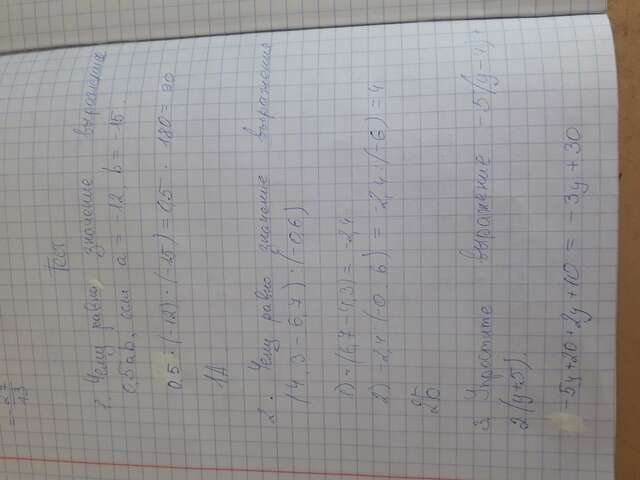 = 27/13
Тест
1. Чему равно значение выражения
0,5ab, если a = -12, b = -15.
0,5 · (-12) · (-15) = 0,5 · 180 = 90
1A
2. Чему равно значение выражения
(4,3 - 6,7) : (-0,6)
1) -(6,7-4,3) = -2,4
2) -2,4 : (-0,6) = -2,4 : (-6) = 4
3. Упростите выражение -5(y-4)
2(y+5).
-5y+20+2y+10 = -3y+30